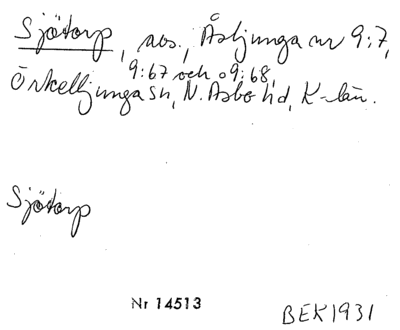 Sjötorp, aos., Åsljunga nr 9:7,
9:67 och 9:68,
Örkelljunga sn, N. Åsbo hd, K-län.
Sjötorp
Nr 14513
BEK 1931